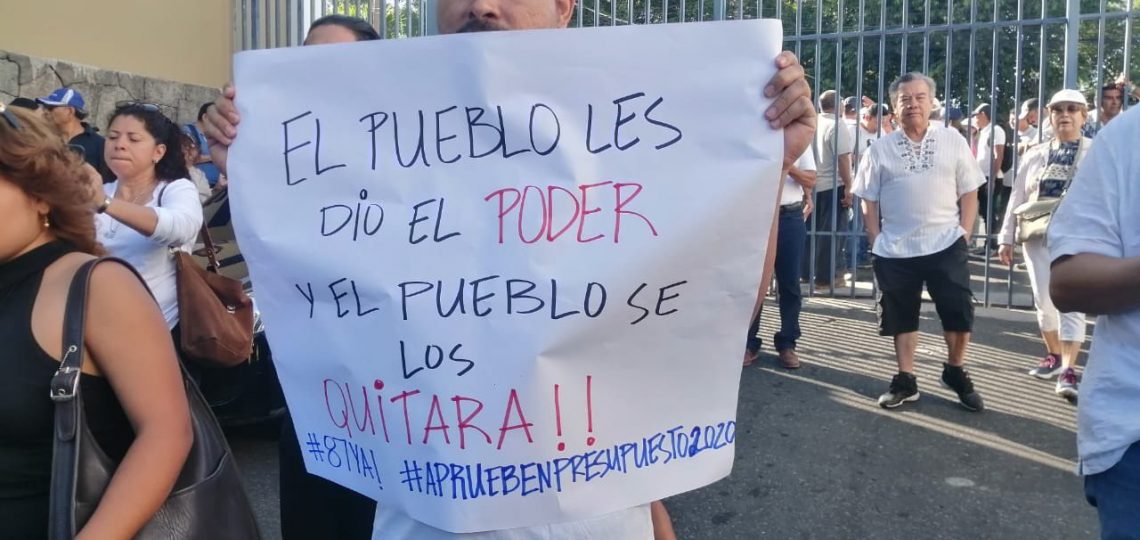 EL PUEBLO LES
DIO EL PODER
Y EL PUEBLO SE
LOS
QUITARA!!
#87YA! #APRUEBENPRESUPUESTO2020